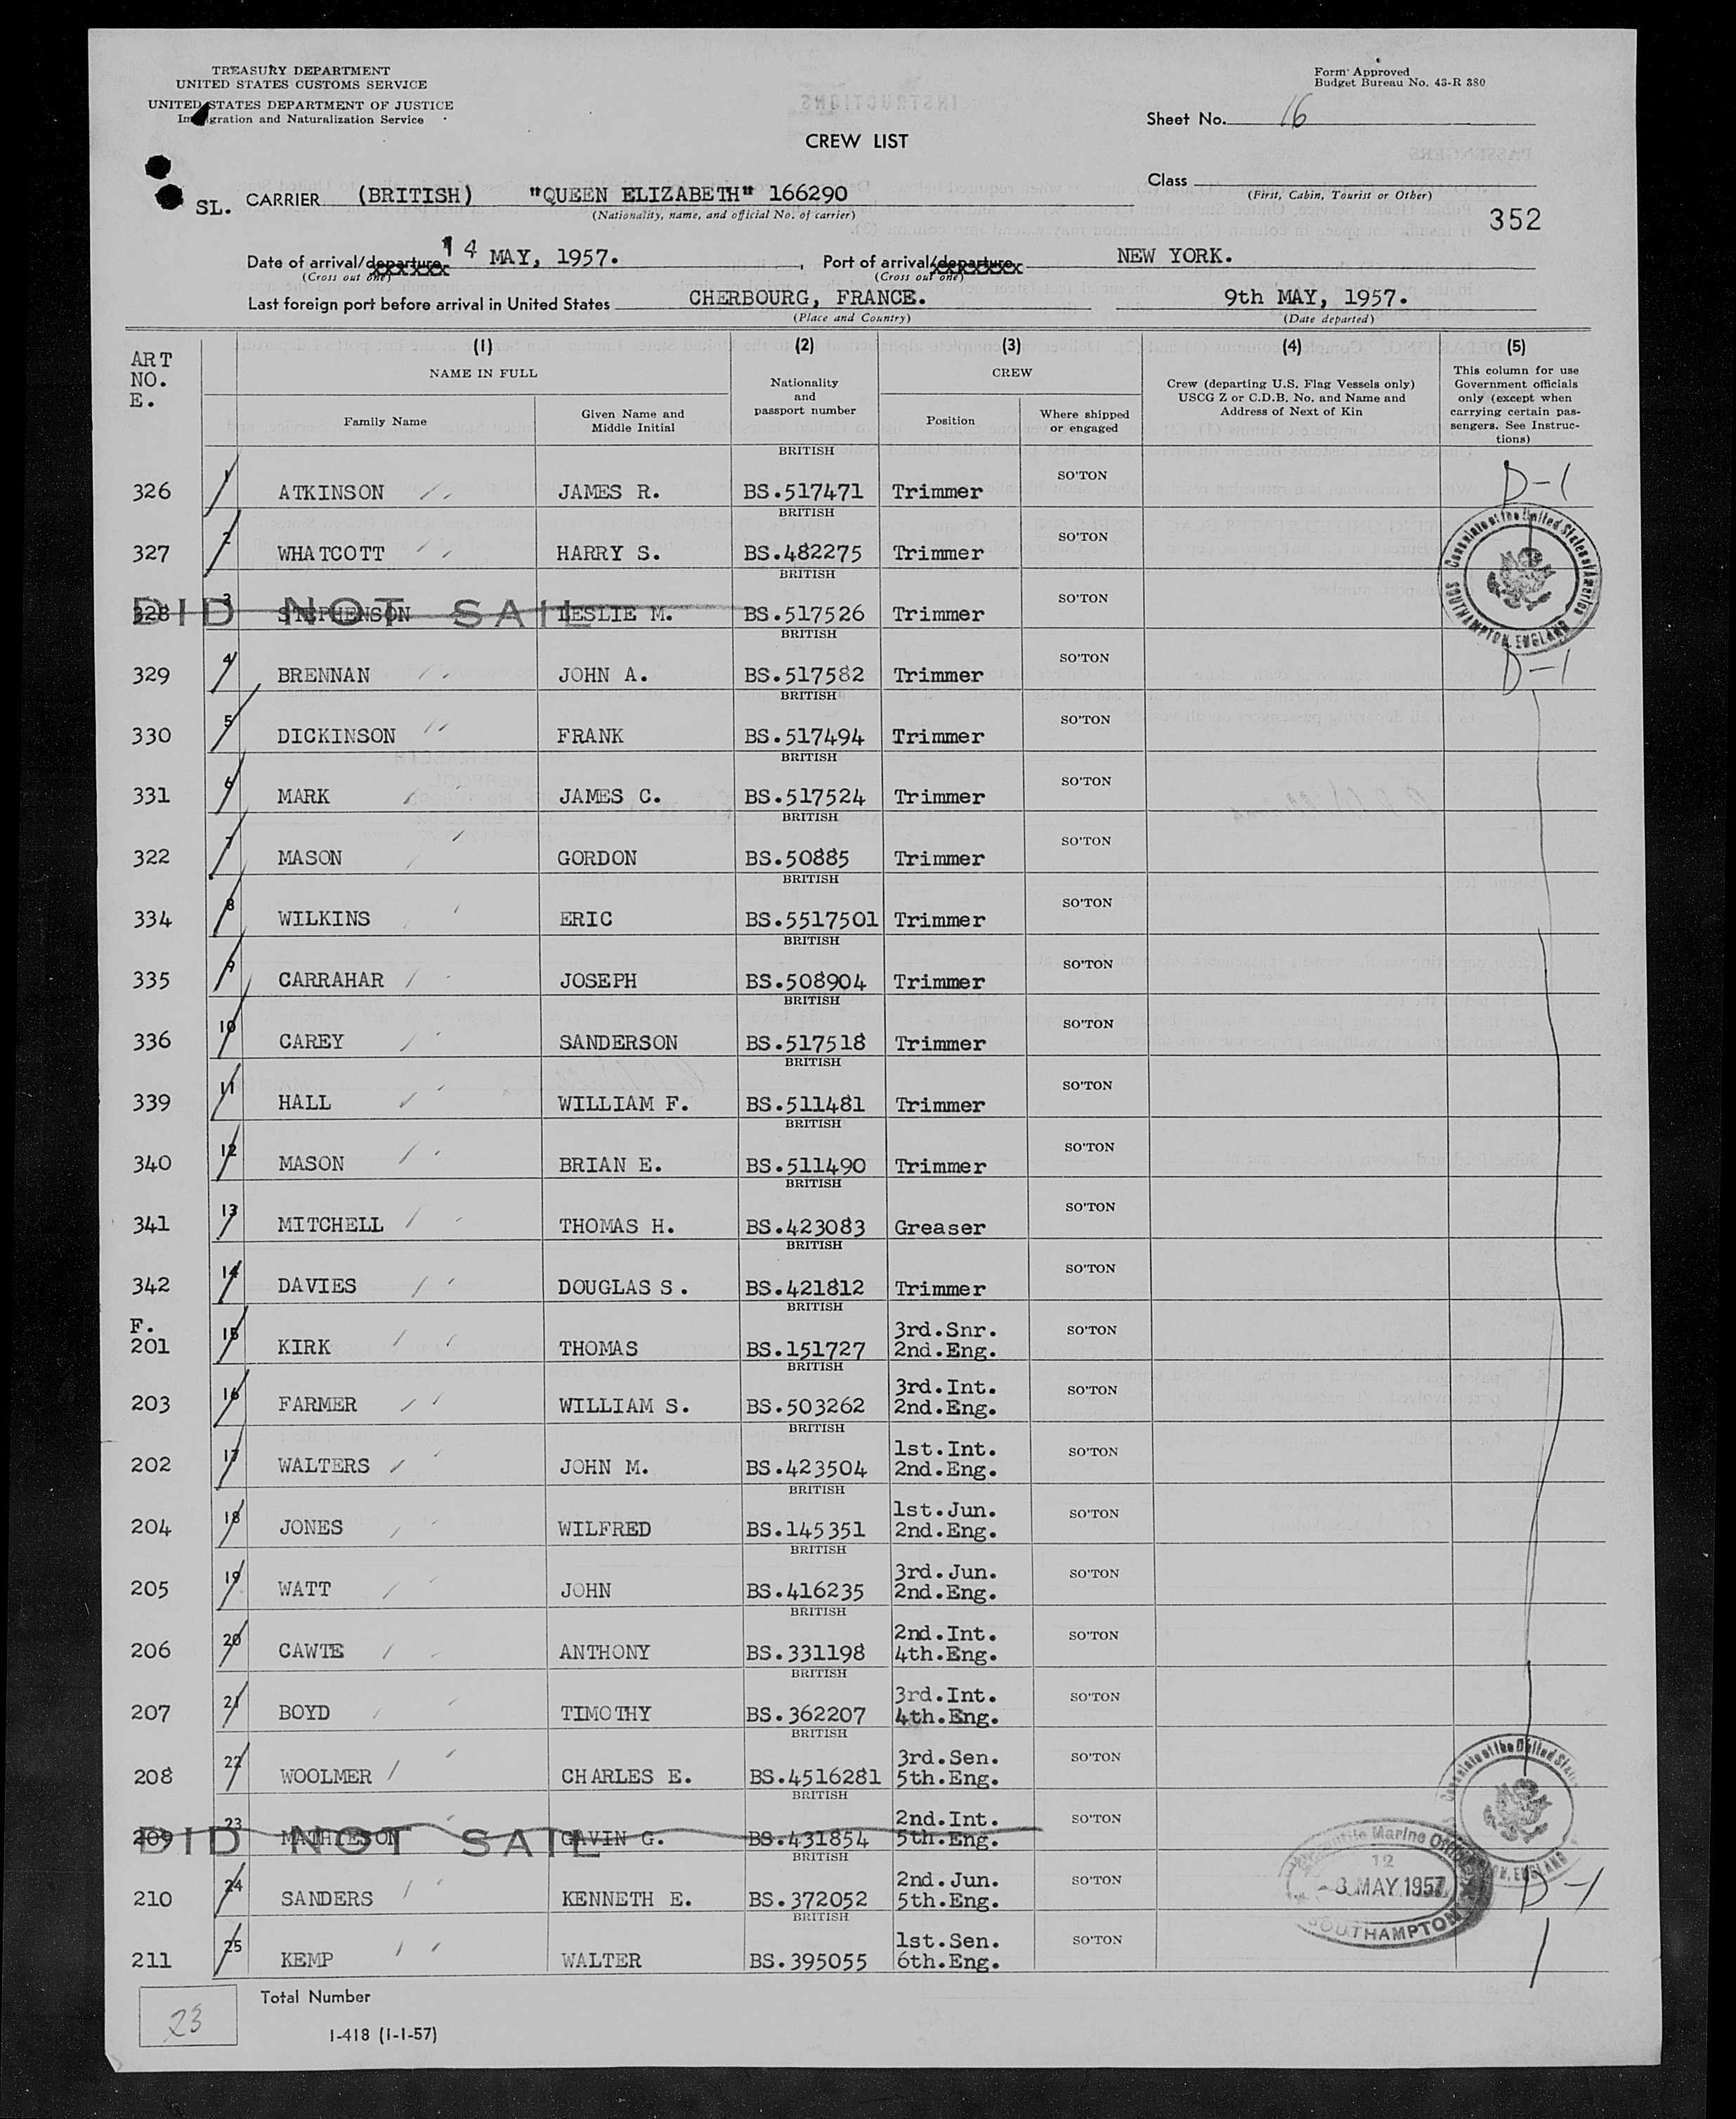 TREASURY DEPARTMENT
UNITED STATES CUSTOMS SERVICE
UNITED STATES DEPARTMENT OF JUSTICE
Immigration and Naturalization Service
Form Approved
Budget Bureau No. 43-R 380
Sheet No. 16
CREW LIST
Class
(First, Cabin, Tourist or Other)
SL. CARRIER (BRITISH) "QUEEN ELIZABETH" 166290
(Nationality, name, and official No. of carrier)
352
Date of arrival/departure 14 MAY, 1957. Port of arrival/departure NEW YORK.
(Cross out one) (Cross out one)
Last foreign port before arrival in United States CHERBOURG, FRANCE. 9th MAY, 1957.
(Place and Country) (Date departed)
ART NO. E.
(1) (2) (3) (4) (5)
NAME IN FULL
Family Name
Given Name and Middle Initial
Nationality and passport number
CREW
Position
Where shipped or engaged
Crew (departing U.S. Flag Vessels only) USCG Z or C.D.B. No. and Name and Address of Next of Kin
This column for use Government officials only (except when carrying certain passengers. See Instructions)
326 1 ATKINSON JAMES R. BRITISH BS.517471 Trimmer SO'TON D-1
327 2 WHATCOTT HARRY S. BRITISH BS.482275 Trimmer SO'TON
Consulate of the United States of America SOUTHAMPTON, ENGLAND
328 3 STEPHENSON LESLIE M. BRITISH BS.517526 Trimmer SO'TON
DID NOT SAIL
329 4 BRENNAN JOHN A. BRITISH BS.517582 Trimmer SO'TON D-1
330 5 DICKINSON FRANK BRITISH BS.517494 Trimmer SO'TON
331 6 MARK JAMES C. BRITISH BS.517524 Trimmer SO'TON
322 7 MASON GORDON BRITISH BS.50885 Trimmer SO'TON
334 8 WILKINS ERIC BRITISH BS.5517501 Trimmer SO'TON
335 9 CARRAHAR JOSEPH BRITISH BS.508904 Trimmer SO'TON
336 10 CAREY SANDERSON BRITISH BS.517518 Trimmer SO'TON
339 11 HALL WILLIAM F. BRITISH BS.511481 Trimmer SO'TON
340 12 MASON BRIAN E. BRITISH BS.511490 Trimmer SO'TON
341 13 MITCHELL THOMAS H. BRITISH BS.423083 Greaser SO'TON
342 14 DAVIES DOUGLAS S. BRITISH BS.421812 Trimmer SO'TON
F.
201 15 KIRK THOMAS BRITISH BS.151727 3rd.Snr. 2nd.Eng. SO'TON
203 16 FARMER WILLIAM S. BRITISH BS.503262 3rd.Int. 2nd.Eng. SO'TON
202 17 WALTERS JOHN M. BRITISH BS.423504 1st.Int. 2nd.Eng. SO'TON
204 18 JONES WILFRED BRITISH BS.145351 1st.Jun. 2nd.Eng. SO'TON
205 19 WATT JOHN BRITISH BS.416235 3rd.Jun. 2nd.Eng. SO'TON
206 20 CAWTE ANTHONY BRITISH BS.331198 2nd.Int. 4th.Eng. SO'TON
207 21 BOYD TIMOTHY BRITISH BS.362207 3rd.Int. 4th.Eng. SO'TON
208 22 WOOLMER CHARLES E. BRITISH BS.4516281 3rd.Sen. 5th.Eng. SO'TON
209 23 MATHIESON GAVIN G. BRITISH BS.431854 2nd.Int. 5th.Eng. SO'TON
DID NOT SAIL
210 24 SANDERS KENNETH E. BRITISH BS.372052 2nd.Jun. 5th.Eng. SO'TON D-1
Mercantile Marine Office 12 -8 MAY 1957 SOUTHAMPTON
211 25 KEMP WALTER BRITISH BS.395055 1st.Sen. 6th.Eng. SO'TON
23 Total Number
I-418 (1-1-57)